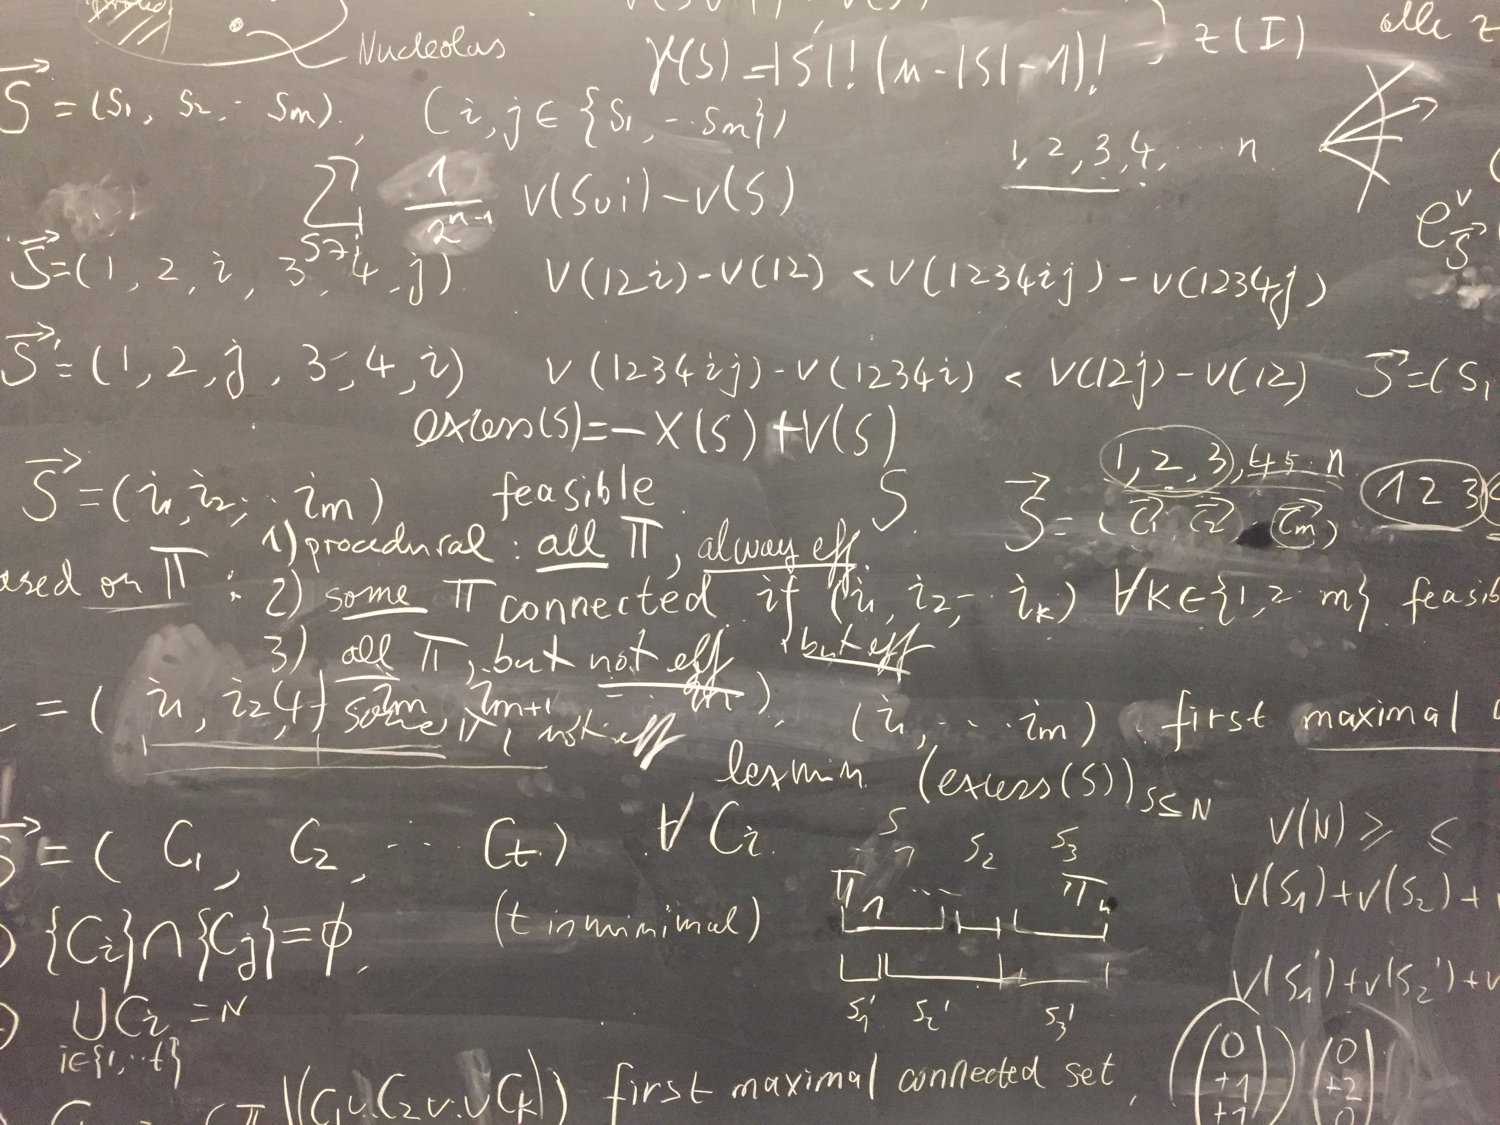 Nucleolus
γ(S) = |S|! (n - |S| - 1)!
z(I)
alle z
S⃗ = (S₁, S₂ ·· Sm), (i, j ∈ {S₁, ·· Sm})
1, 2, 3, 4, ·· n
∑ S∌i 1/2ⁿ⁻¹ V(S∪i) - V(S)
e^v_S⃗
S⃗ = (1, 2, i, 3, 4, j) V(12i) - V(12) < V(1234ij) - V(1234j)
S⃗' = (1, 2, j, 3, 4, i) V(1234ij) - V(1234i) < V(12j) - V(12) S⃗ = (S₁
excess(S) = - X(S) + V(S)
1, 2, 3, 4 5 ·· n
S⃗ = (i₁, i₂, ·· im) feasible S S⃗ = (C⃗₁ C⃗₂ C⃗m) 1 2 3
1) procedural : all Π, alway eff
ased on Π : 2) some Π connected if (i₁, i₂, ·· ik) ∀k ∈ {1, 2 ·· m} feasib
3) all Π, but not eff but eff
= (i₁, i₂, im im+1 ·· in), (i₁, ·· im) first maximal
4) some Π, not eff
lexmin (excess(S)) S⊆N
S⃗ = (C₁, C₂, ·· Ct) ∀ Ci
S₁ S₂ S₃
V(N) ≥ ≤
Π₁ ··· Πn
V(S₁) + V(S₂) +
{Ci} ∩ {Cj} = ϕ, (t is minimal)
V(S₁') + V(S₂') + V
∪Ci = N
i∈{1, ·· t}
S₁' S₂' S₃'
(0 +1 +1) (0 +2 0
(Π|(C₁∪C₂∪··∪Ck|) first maximal connected set,